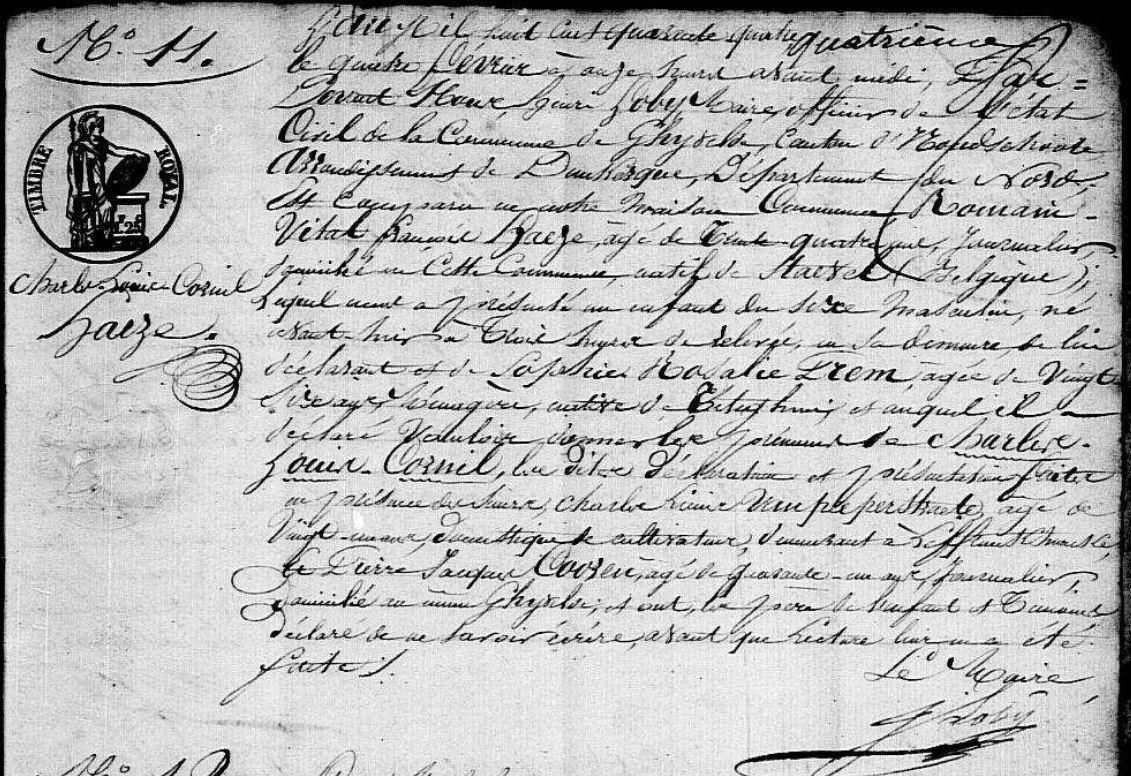 N.° 11.
L'an Mil huit cent quarante quatre
le quatre Février à onze heures avant midi, Par-
Devant Nous, Loby Maire, officier de l'état
Civil de la Commune de Ghyvelde, Canton d'Hondschoote,
Arrondissement de Dunkerque, Département du Nord,
Est Comparu en notre Maison Commune Romain-
Vital françois Haeze, agé de Trente-quatre ans, Journalier,
domicilié en Cette Commune, natif de Stavel (Belgique);
Lequel nous a présenté un enfant du sexe Masculin, né
avant-hier à Trois heures de relevée, en sa demeure, de lui
déclarant et de Sophie Rosalie Trem, agée de Vingt
Six ans, Ménagère, native de et auquel il
déclaré Vouloir donner les prénoms de Charles-
Louis-Cornil, les dites déclaration et présentation faites
en présence des Sieurs, Charles Louis Vanpeperstraete, agé de
Vingt-neuf ans, domestique de cultivateur, demeurant à
et Pierre Jacques Cooren, agé de quarante-un ans, Journalier,
domicilié au même Ghyvelde; et ont, les père de l'enfant et Témoins
déclaré de ne savoir écrire, avant que lecture leur en a été
faite.
Le Maire
Loby
TIMBRE ROYAL
F. 25
Charles-Louis-Cornil
Haeze.